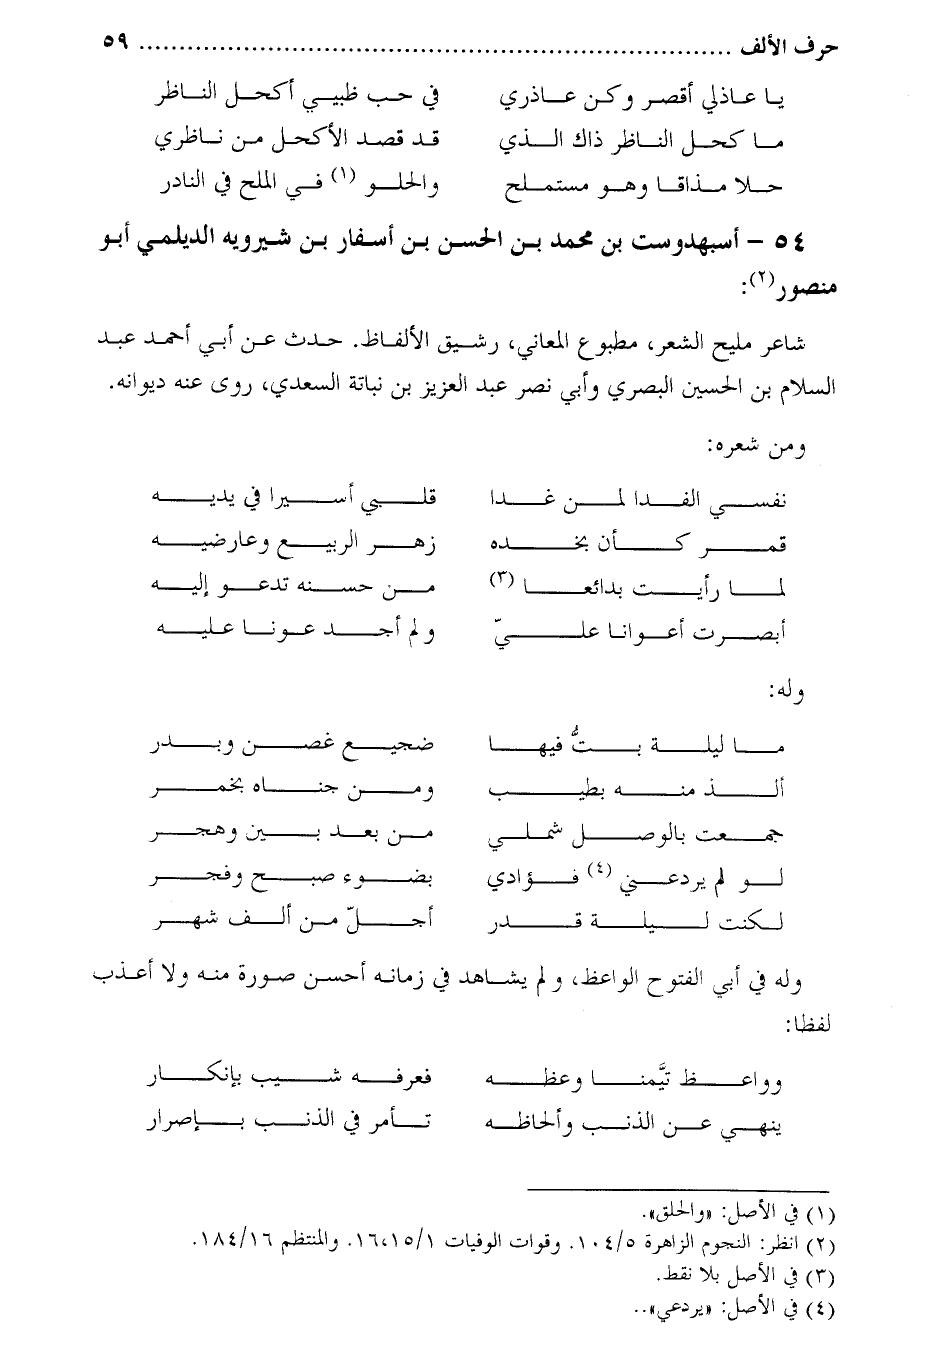 حرف الألف ........................................................................ ٥٩
يا عاذلي أقصر وكن عاذري في حب ظبيي أكحل الناظر
ما كحل الناظر ذاك الذي قد قصد الأكحل من ناظري
حلا مذاقا وهو مستملح والحلو (١) في الملح في النادر
٥٤ – أسبهدوست بن محمد بن الحسن بن أسفار بن شيرويه الديلمي أبو
منصور(٢):
شاعر مليح الشعر، مطبوع المعاني، رشيق الألفاظ. حدث عن أبي أحمد عبد
السلام بن الحسين البصري وأبي نصر عبد العزيز بن نباتة السعدي، روى عنه ديوانه.
ومن شعره:
نفسي الفدا لمن غدا قلبي أسيرا في يديه
قمر كأن بخده زهر الربيع وعارضيه
لما رأيت بدائعا (٣) من حسنه تدعو إليه
أبصرت أعوانا عليّ ولم أجد عونا عليه
وله:
ما ليلة بتُّ فيها ضجيع غصن وبدر
ألذ منه بطيب ومن جناه بخمر
جمعت بالوصل شملي من بعد بين وهجر
لو لم يردعني (٤) فؤادي بضوء صبح وفجر
لكنت ليلة قدر أجلّ من ألف شهر
وله في أبي الفتوح الواعظ، ولم يشاهد في زمانه أحسن صورة منه ولا أعذب
لفظا:
وواعظ تيَّمنا وعظه فعرفه شيب بإنكار
ينهي عن الذنب وألحاظه تأمر في الذنب بإصرار
(١) في الأصل: «والحلق».
(٢) انظر: النجوم الزاهرة ١٠٤/٥. وفوات الوفيات ١٦،١٥/١. والمنتظم ١٨٤/١٦.
(٣) في الأصل بلا نقط.
(٤) في الأصل: «يردعي»..